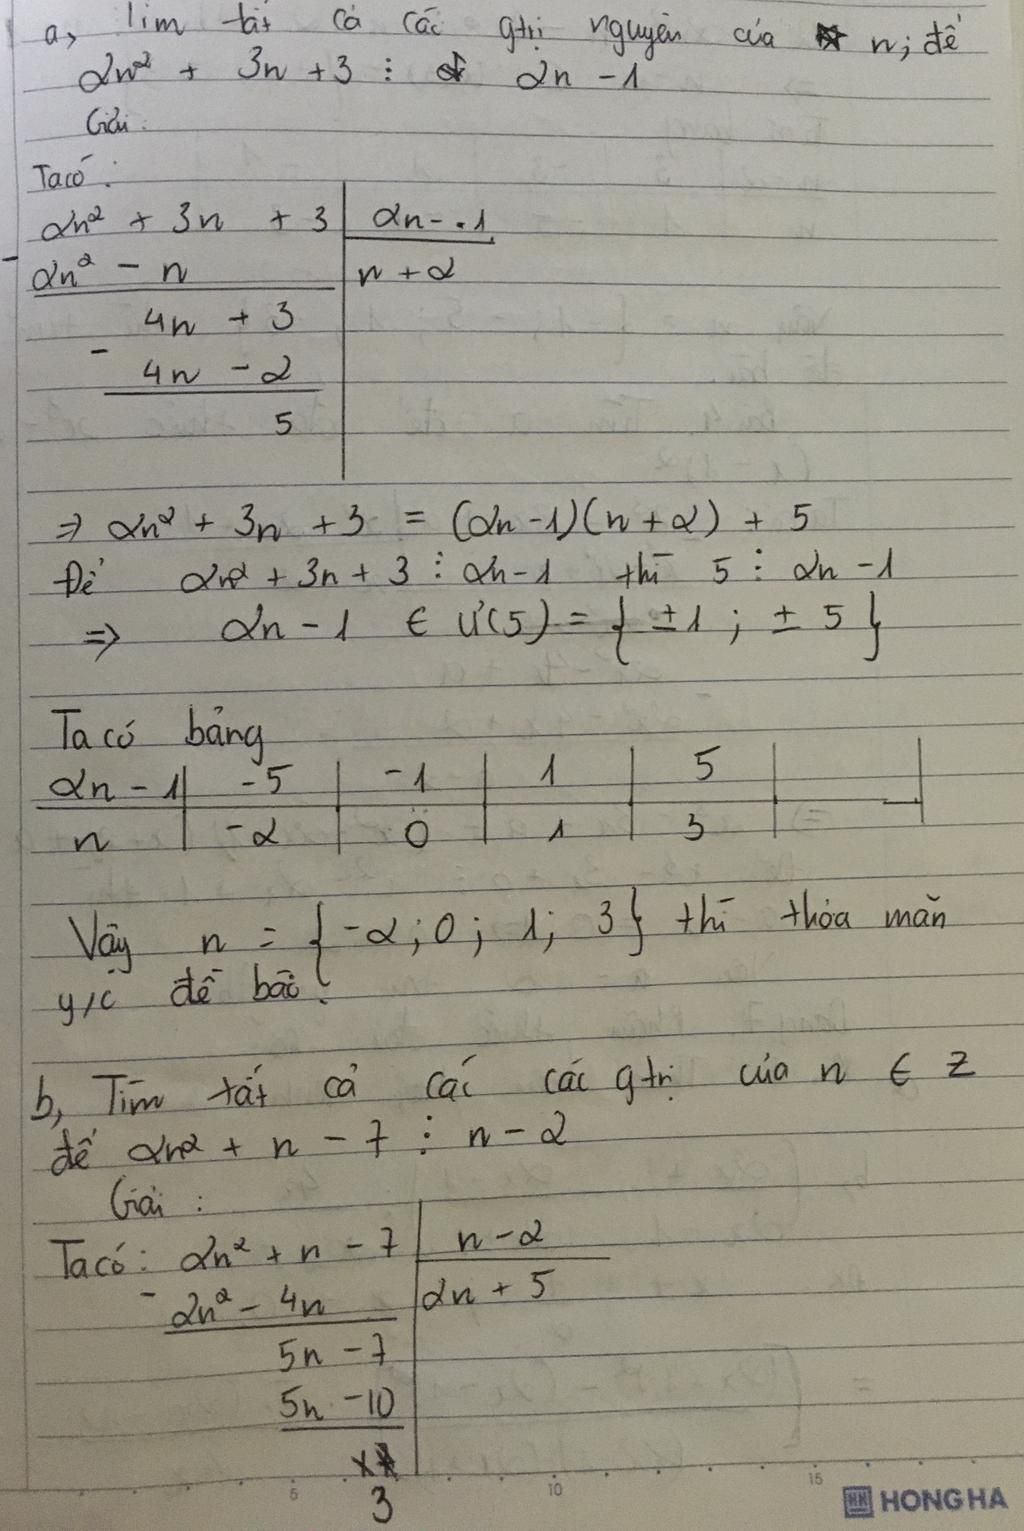 a, Tìm tất cả các gtrị nguyên của n; để
2n² + 3n + 3 ⋮ 2n - 1
Giải:
Ta có:
2n² + 3n + 3 | 2n - 1
- 2n² - n | n + 2
4n + 3
- 4n - 2
5
⇒ 2n² + 3n + 3 = (2n - 1)(n + 2) + 5
Để 2n² + 3n + 3 ⋮ 2n - 1 thì 5 ⋮ 2n - 1
⇒ 2n - 1 ∈ Ư(5) = { ±1 ; ± 5 }
Ta có bảng
2n - 1 | -5 | -1 | 1 | 5
n | -2 | 0 | 1 | 3
Vậy n = {-2; 0; 1; 3} thì thỏa mãn
y/c đề bài.
b, Tìm tất cả các các gtrị của n ∈ Z
để 2n² + n - 7 ⋮ n - 2
Giải :
Ta có: 2n² + n - 7 | n - 2
- 2n² - 4n | 2n + 5
5n - 7
5n - 10
3
5 10 15
HONG HA